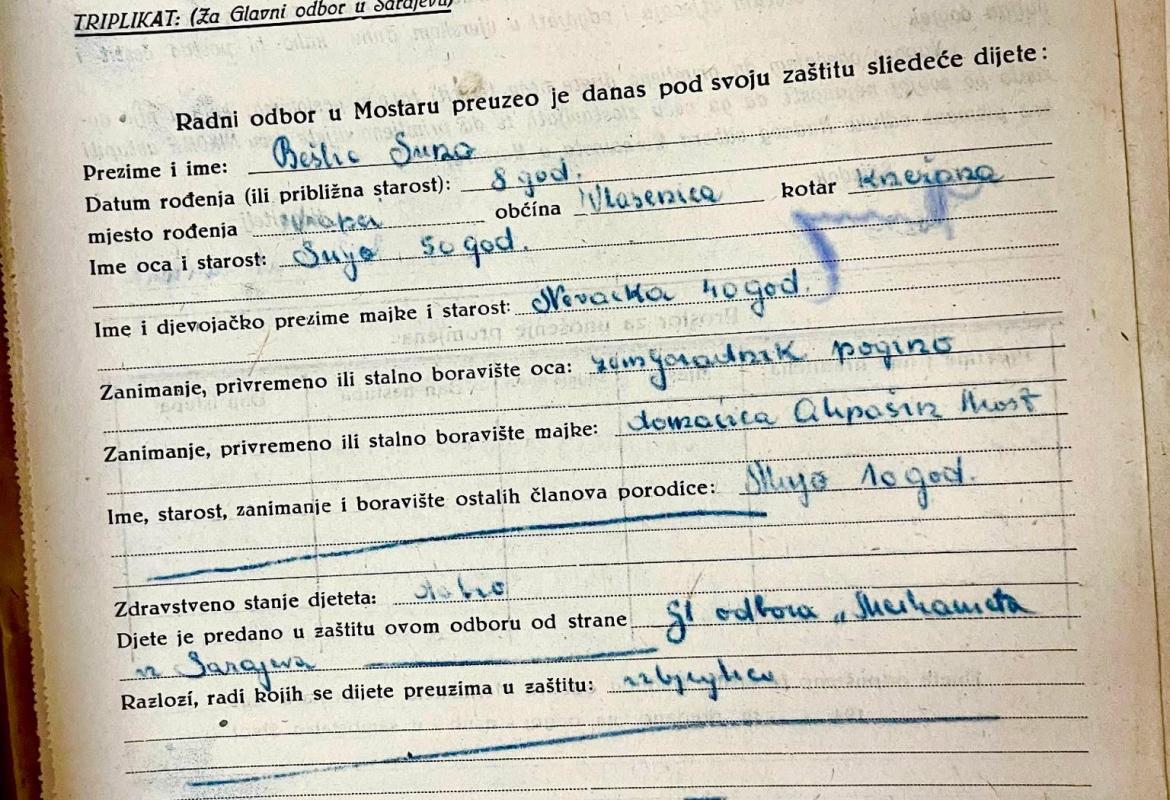 TRIPLIKAT: (Za Glavni odbor u Sarajevu)
Radni odbor u Mostaru preuzeo je danas pod svoju zaštitu sliedeće dijete:
Prezime i ime: Bešlić Suno
Datum rođenja (ili približna starost): 8 god.
mjesto rođenja obćina Vlasenica kotar
Ime oca i starost: Suljo 50 god.
Ime i djevojačko prezime majke i starost: 40 god.
Zanimanje, privremeno ili stalno boravište oca: zemljoradnik pogino
Zanimanje, privremeno ili stalno boravište majke: domaćica Alipašin Most
Ime, starost, zanimanje i boravište ostalih članova porodice: Mujo 10 god.
Zdravstveno stanje djeteta: dobro
Djete je predano u zaštitu ovom odboru od strane Gl odbora „Merhameta
u Sarajevu
Razlozi, radi kojih se dijete preuzima u zaštitu: izbjeglica